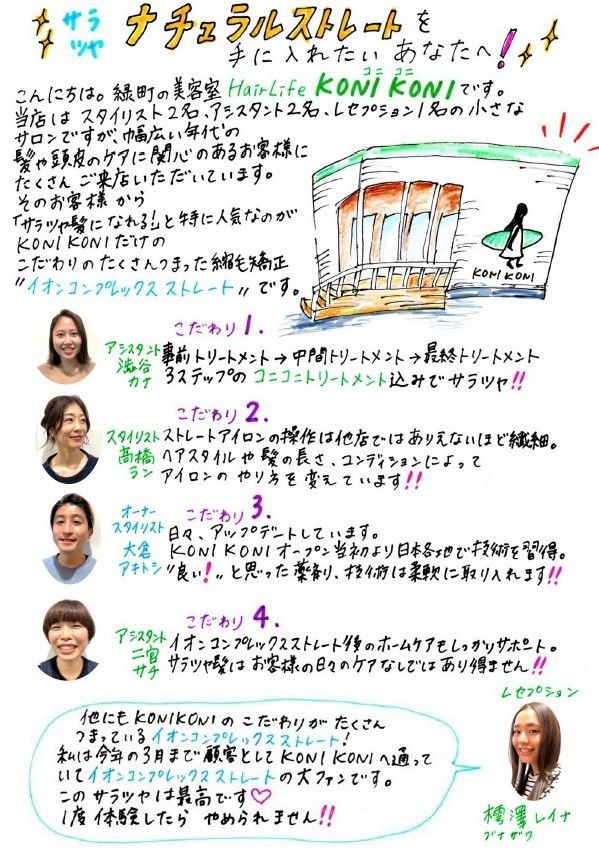 サラ
ツヤ
ナチュラルストレートを
手に入れたいあなたへ!
こんにちは。緑町の美容室 HairLife KONI KONI です。
コニ コニ
当店はスタイリスト2名、アシスタント2名、レセプション1名の小さな
サロンですが、幅広い年代の
髪や頭皮のケアに関心のあるお客様に
たくさんご来店いただいています。
そのお客様から
「サラツヤ髪になれる!」と特に人気なのが
KONI KONIだけの
こだわりのたくさんつまった縮毛矯正
"イオンコンプレックス ストレート"です。
KONI KONI
こだわり 1.
アシスタント
澁谷
カナ
事前トリートメント→中間トリートメント→最終トリートメント
3ステップのコニコニトリートメント込みでサラツヤ!!
こだわり 2.
スタイリスト
髙橋
ラン
ストレートアイロンの操作は他店ではありえないほど繊細。
ヘアスタイルや髪の長さ、コンディションによって
アイロンのやり方を変えています!!
こだわり 3.
オーナー
スタイリスト
大倉
アキトシ
日々、アップデートしています。
KONI KONI オープン当初より日本各地で技術を習得。
"良い!"と思った薬剤、技術は柔軟に取り入れます!!
こだわり 4.
アシスタント
二宮
サチ
イオンコンプレックスストレート後のホームケアもしっかりサポート。
サラツヤ髪はお客様の日々のケアなしではあり得ません!!
他にもKONIKONIのこだわりがたくさん
つまっているイオンコンプレックスストレート!
私は今年の3月まで顧客としてKONI KONIへ通って
いてイオンコンプレックスストレートの大ファンです。
このサラツヤは最高です♡
1度体験したらやめられません!!
レセプション
樗澤レイナ
ブナザワ